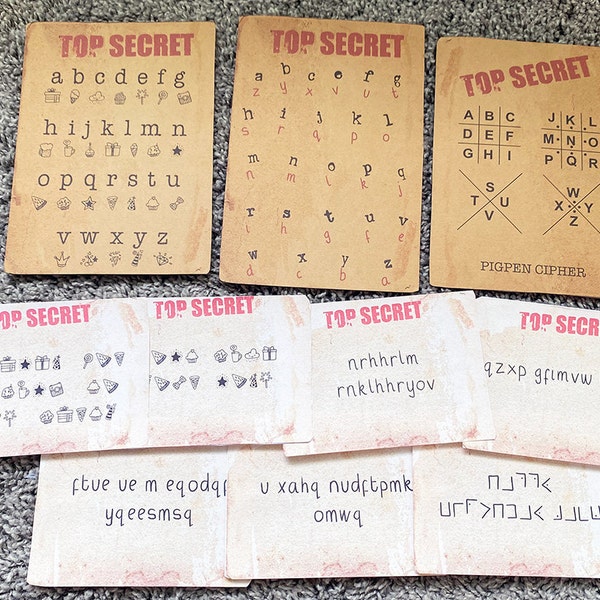 TOP SECRET
a b c d e f g
h i j k l m n
o p q r s t u
v w x y z
TOP SECRET
h i j k l
s r q p o
m n o p q
n m l k j
r s t u v
i h g f e
w x y z
d c b a
TOP SECRET
A B C
D E F
G H I
J K L
M N O
P Q R
S
T U
V
W
X Y
Z
PIGPEN CIPHER
TOP SECRET
TOP SECRET
TOP SECRET
nrhhrlm
rnklhhryov
TOP SECRET
qzxp gfimvw
ftue ue m eqodqf
yqeesmsq
u xahq nudftpmk
omwq